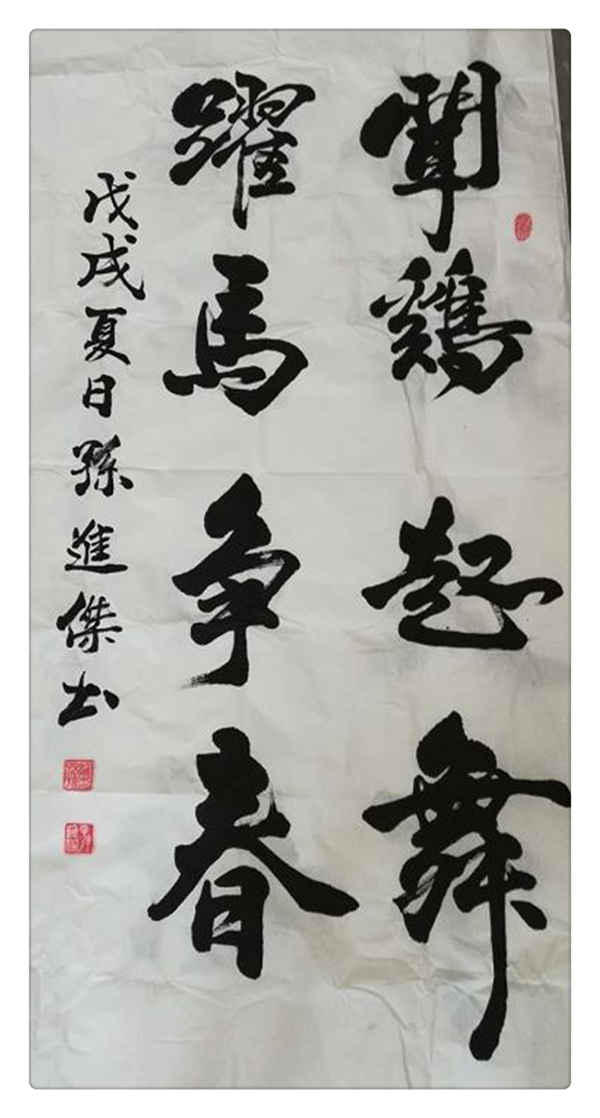 聞鷄起舞
躍馬争春
戊戌夏日孫進傑书